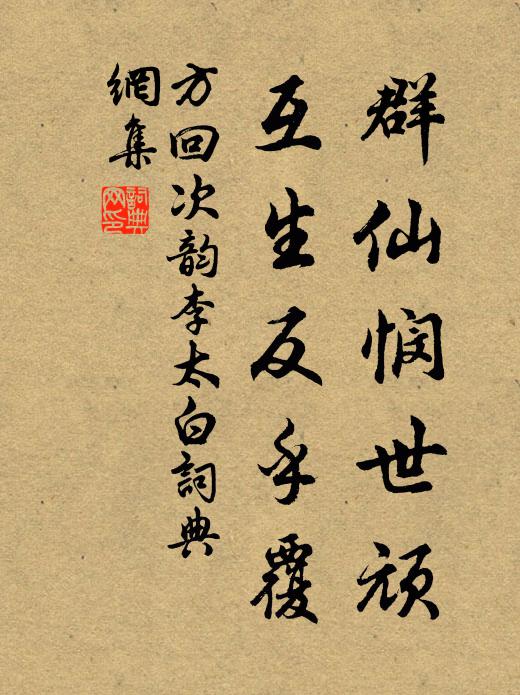 群仙悯世顽
互生反乎覆
方回次韵李太白詞典
網集
詞典
网印